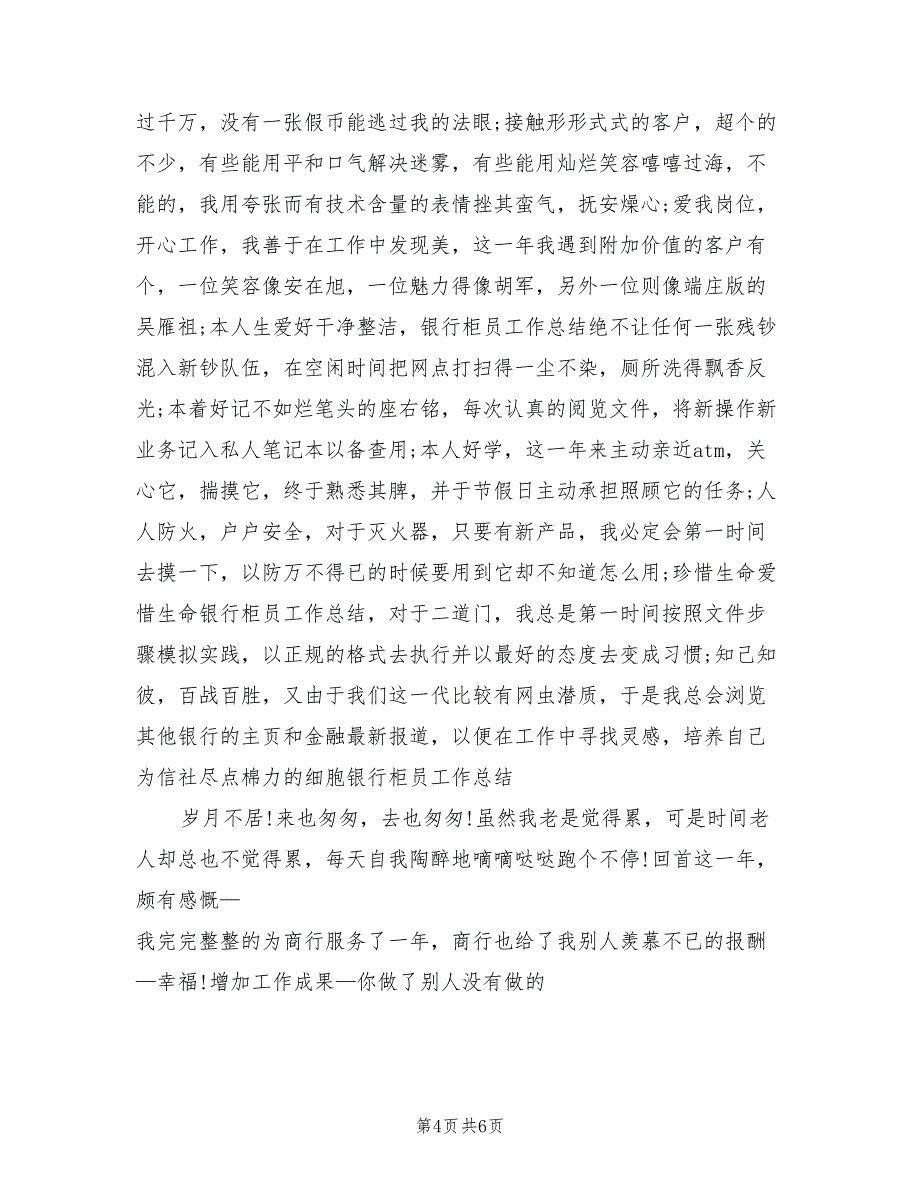 过千万，没有一张假币能逃过我的法眼;接触形形式式的客户，超个的
不少，有些能用平和口气解决迷雾，有些能用灿烂笑容嘻嘻过海，不
能的，我用夸张而有技术含量的表情挫其蛮气，抚安燥心;爱我岗位，
开心工作，我善于在工作中发现美，这一年我遇到附加价值的客户有
个，一位笑容像安在旭，一位魅力得像胡军，另外一位则像端庄版的
吴雁祖;本人生爱好干净整洁，银行柜员工作总结绝不让任何一张残钞
混入新钞队伍，在空闲时间把网点打扫得一尘不染，厕所洗得飘香反
光;本着好记不如烂笔头的座右铭，每次认真的阅览文件，将新操作新
业务记入私人笔记本以备查用;本人好学，这一年来主动亲近atm，关
心它，揣摸它，终于熟悉其脾，并于节假日主动承担照顾它的任务;人
人防火，户户安全，对于灭火器，只要有新产品，我必定会第一时间
去摸一下，以防万不得已的时候要用到它却不知道怎么用;珍惜生命爱
惜生命银行柜员工作总结，对于二道门，我总是第一时间按照文件步
骤模拟实践，以正规的格式去执行并以最好的态度去变成习惯;知己知
彼，百战百胜，又由于我们这一代比较有网虫潜质，于是我总会浏览
其他银行的主页和金融最新报道，以便在工作中寻找灵感，培养自己
为信社尽点棉力的细胞银行柜员工作总结
岁月不居!来也匆匆，去也匆匆!虽然我老是觉得累，可是时间老
人却总也不觉得累，每天自我陶醉地嘀嘀哒哒跑个不停!回首这一年，
颇有感慨—
我完完整整的为商行服务了一年，商行也给了我别人羡慕不已的报酬
—幸福!增加工作成果—你做了别人没有做的
第4页共6页